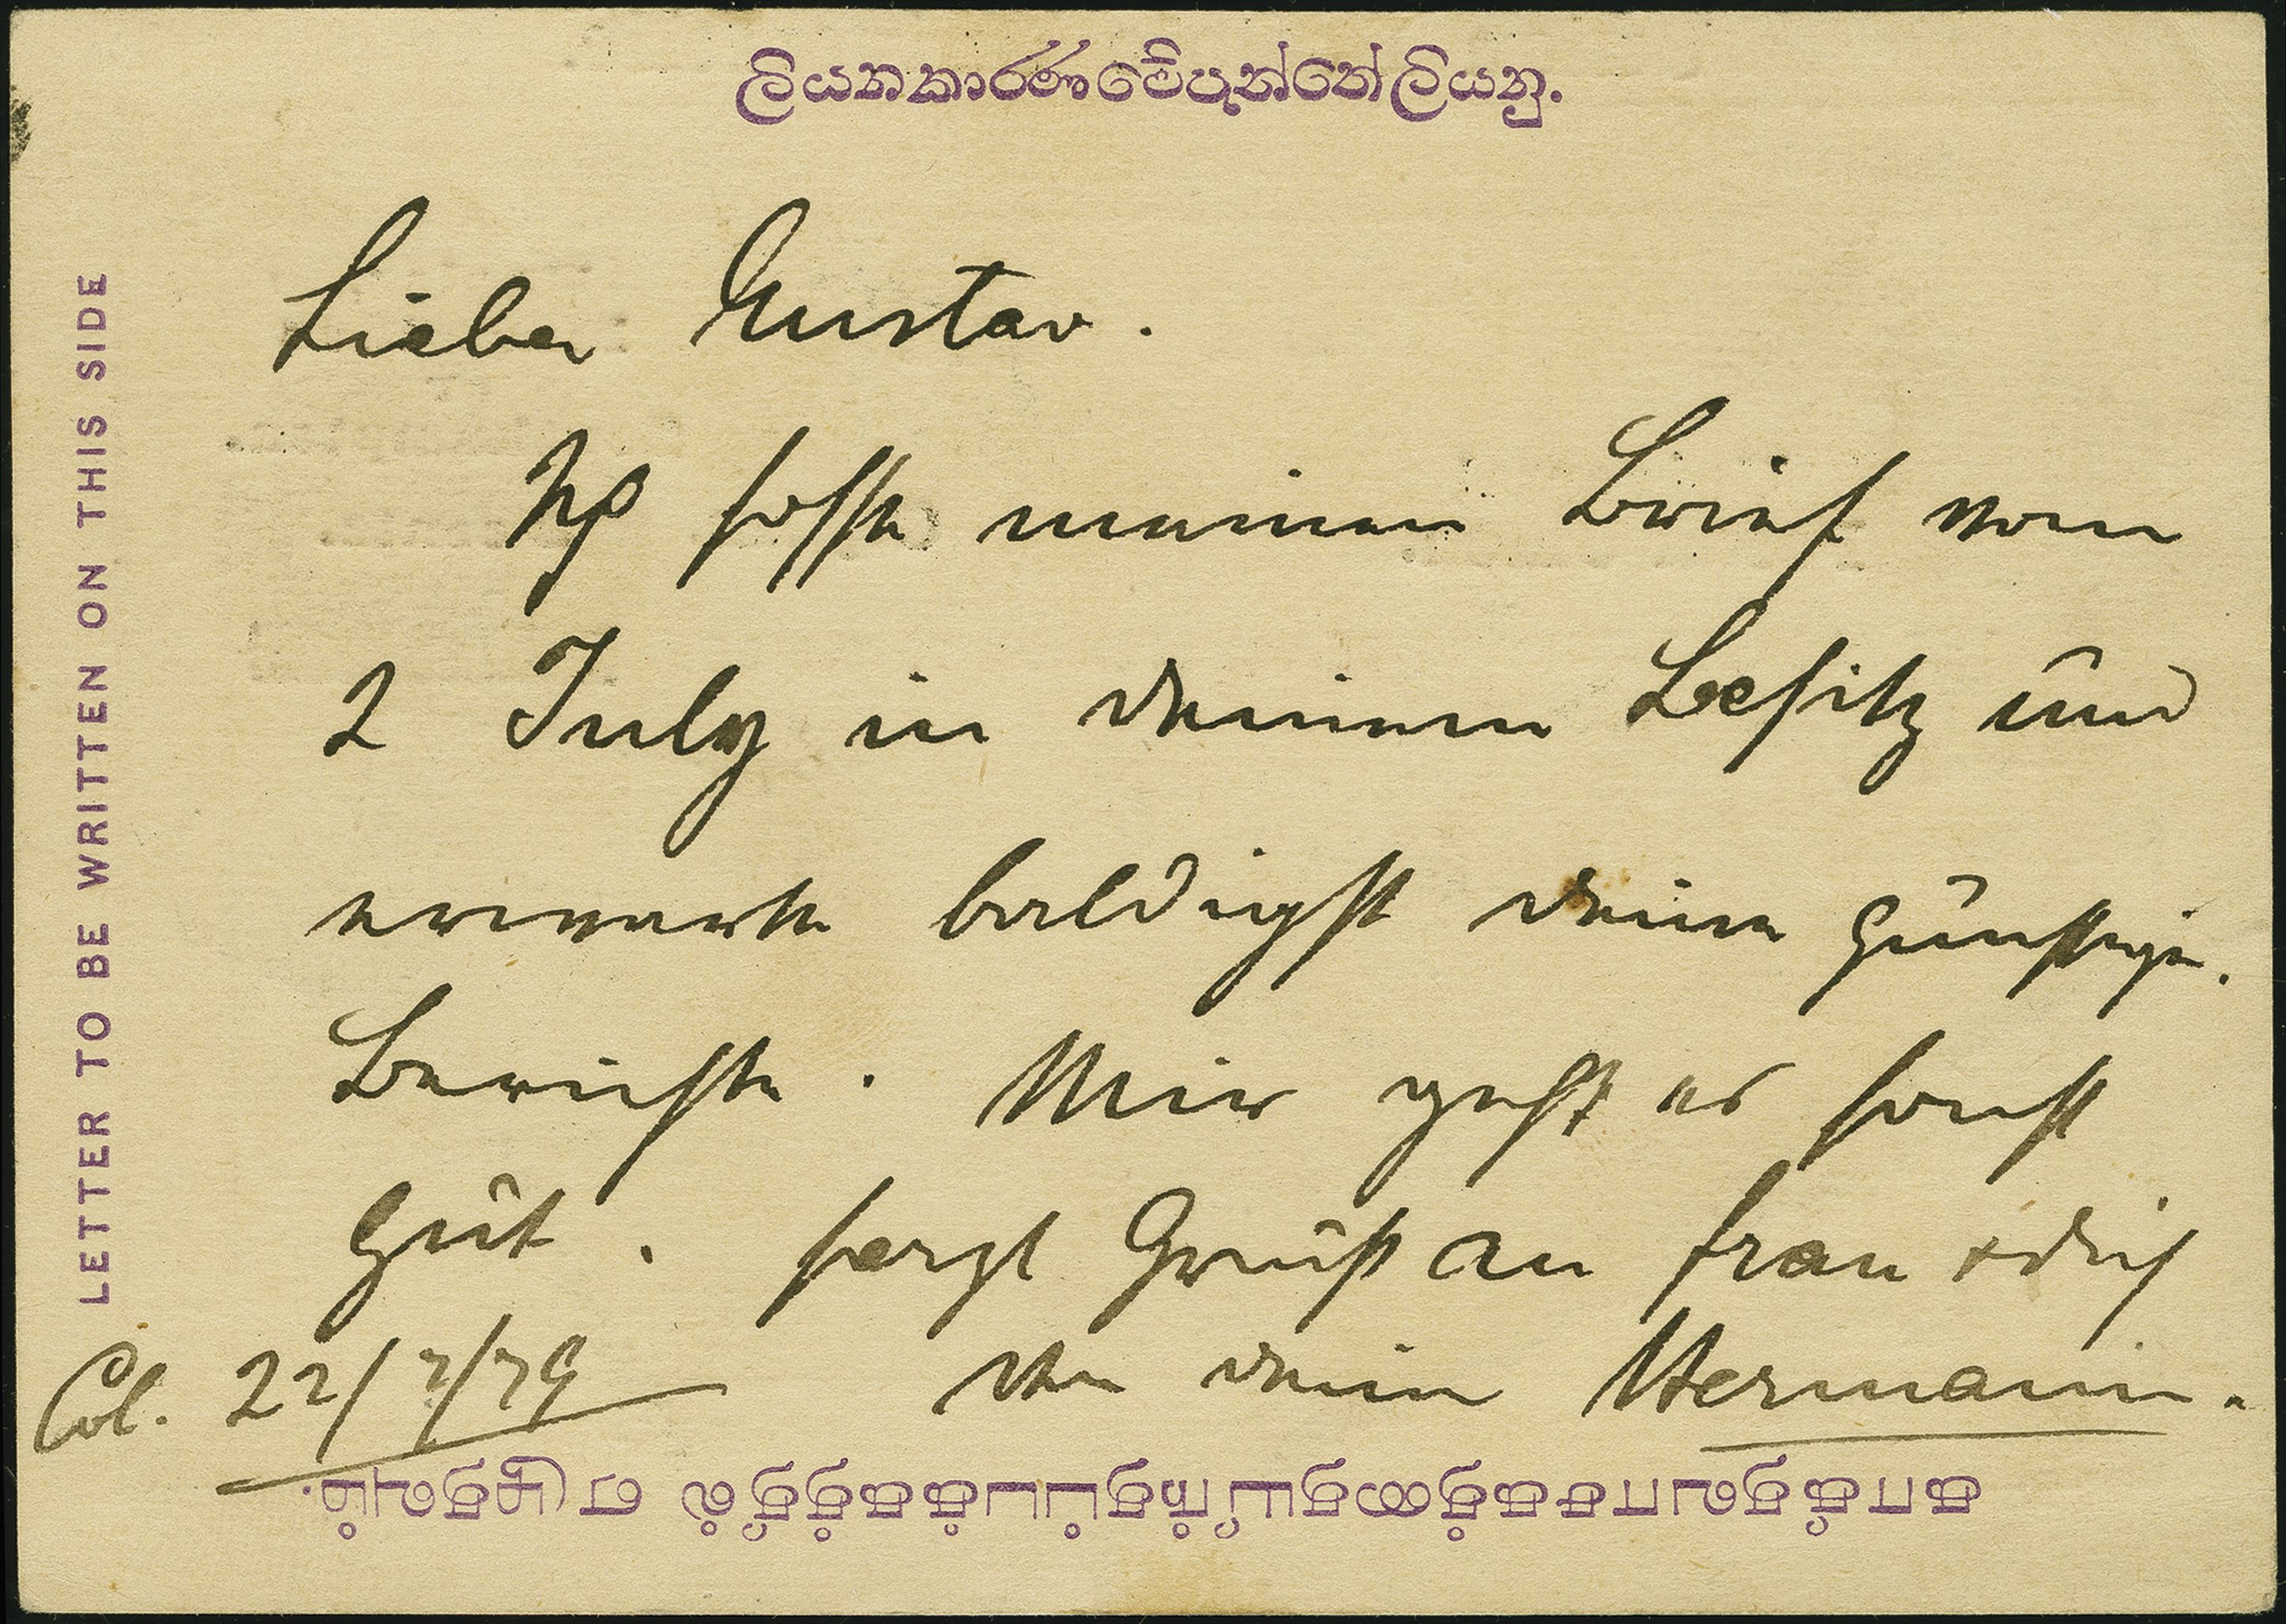 ලියනකාරණමේපැත්තේලියනු.
LETTER TO BE WRITTEN ON THIS SIDE
Lieber Gustav.
Ich hoffe meinen Brief vom
2 July in deinem Besitz und
erwarte baldigst deine günstige.
Berichte. Mir geht es sonst
gut. herzl Gruß an Frau & dich
dein Hermann.
Col. 22/7/79